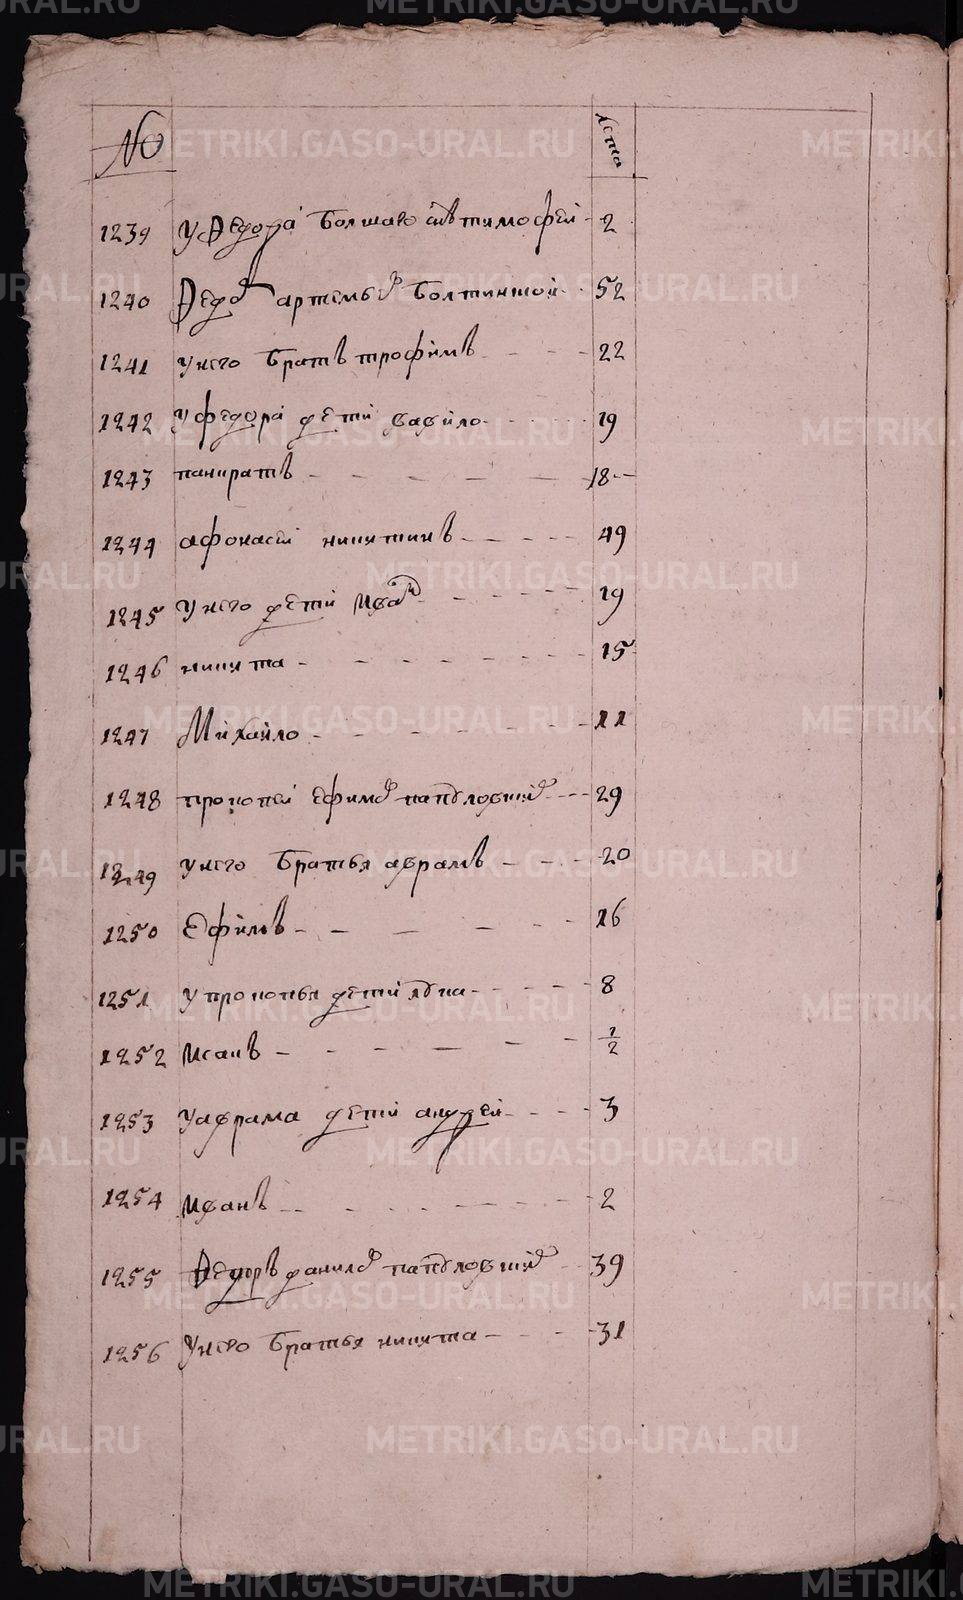 METRIKI.GASO-URAL.RU
№ лета
1239 У Федора болшаго сынъ тимофей 2
1240 Федор артемьев 52
1241 у него братъ трофимъ 22
1242 у федора дети вавило 19
1243 панкратъ 18
1244 афонасей никитинъ 49
1245 у него дети Иван 19
1246 никита 15
1247 Михайло 11
1248 прокопей ефимов 29
1249 у него братья аврамъ 20
1250 Ефимъ 16
1251 у прокопья дети лука 8
1252 Исакъ 1/2
1253 у аврама дети андрей 3
1254 Иванъ 2
1255 Федоръ данилов 39
1256 у него братья никита 31